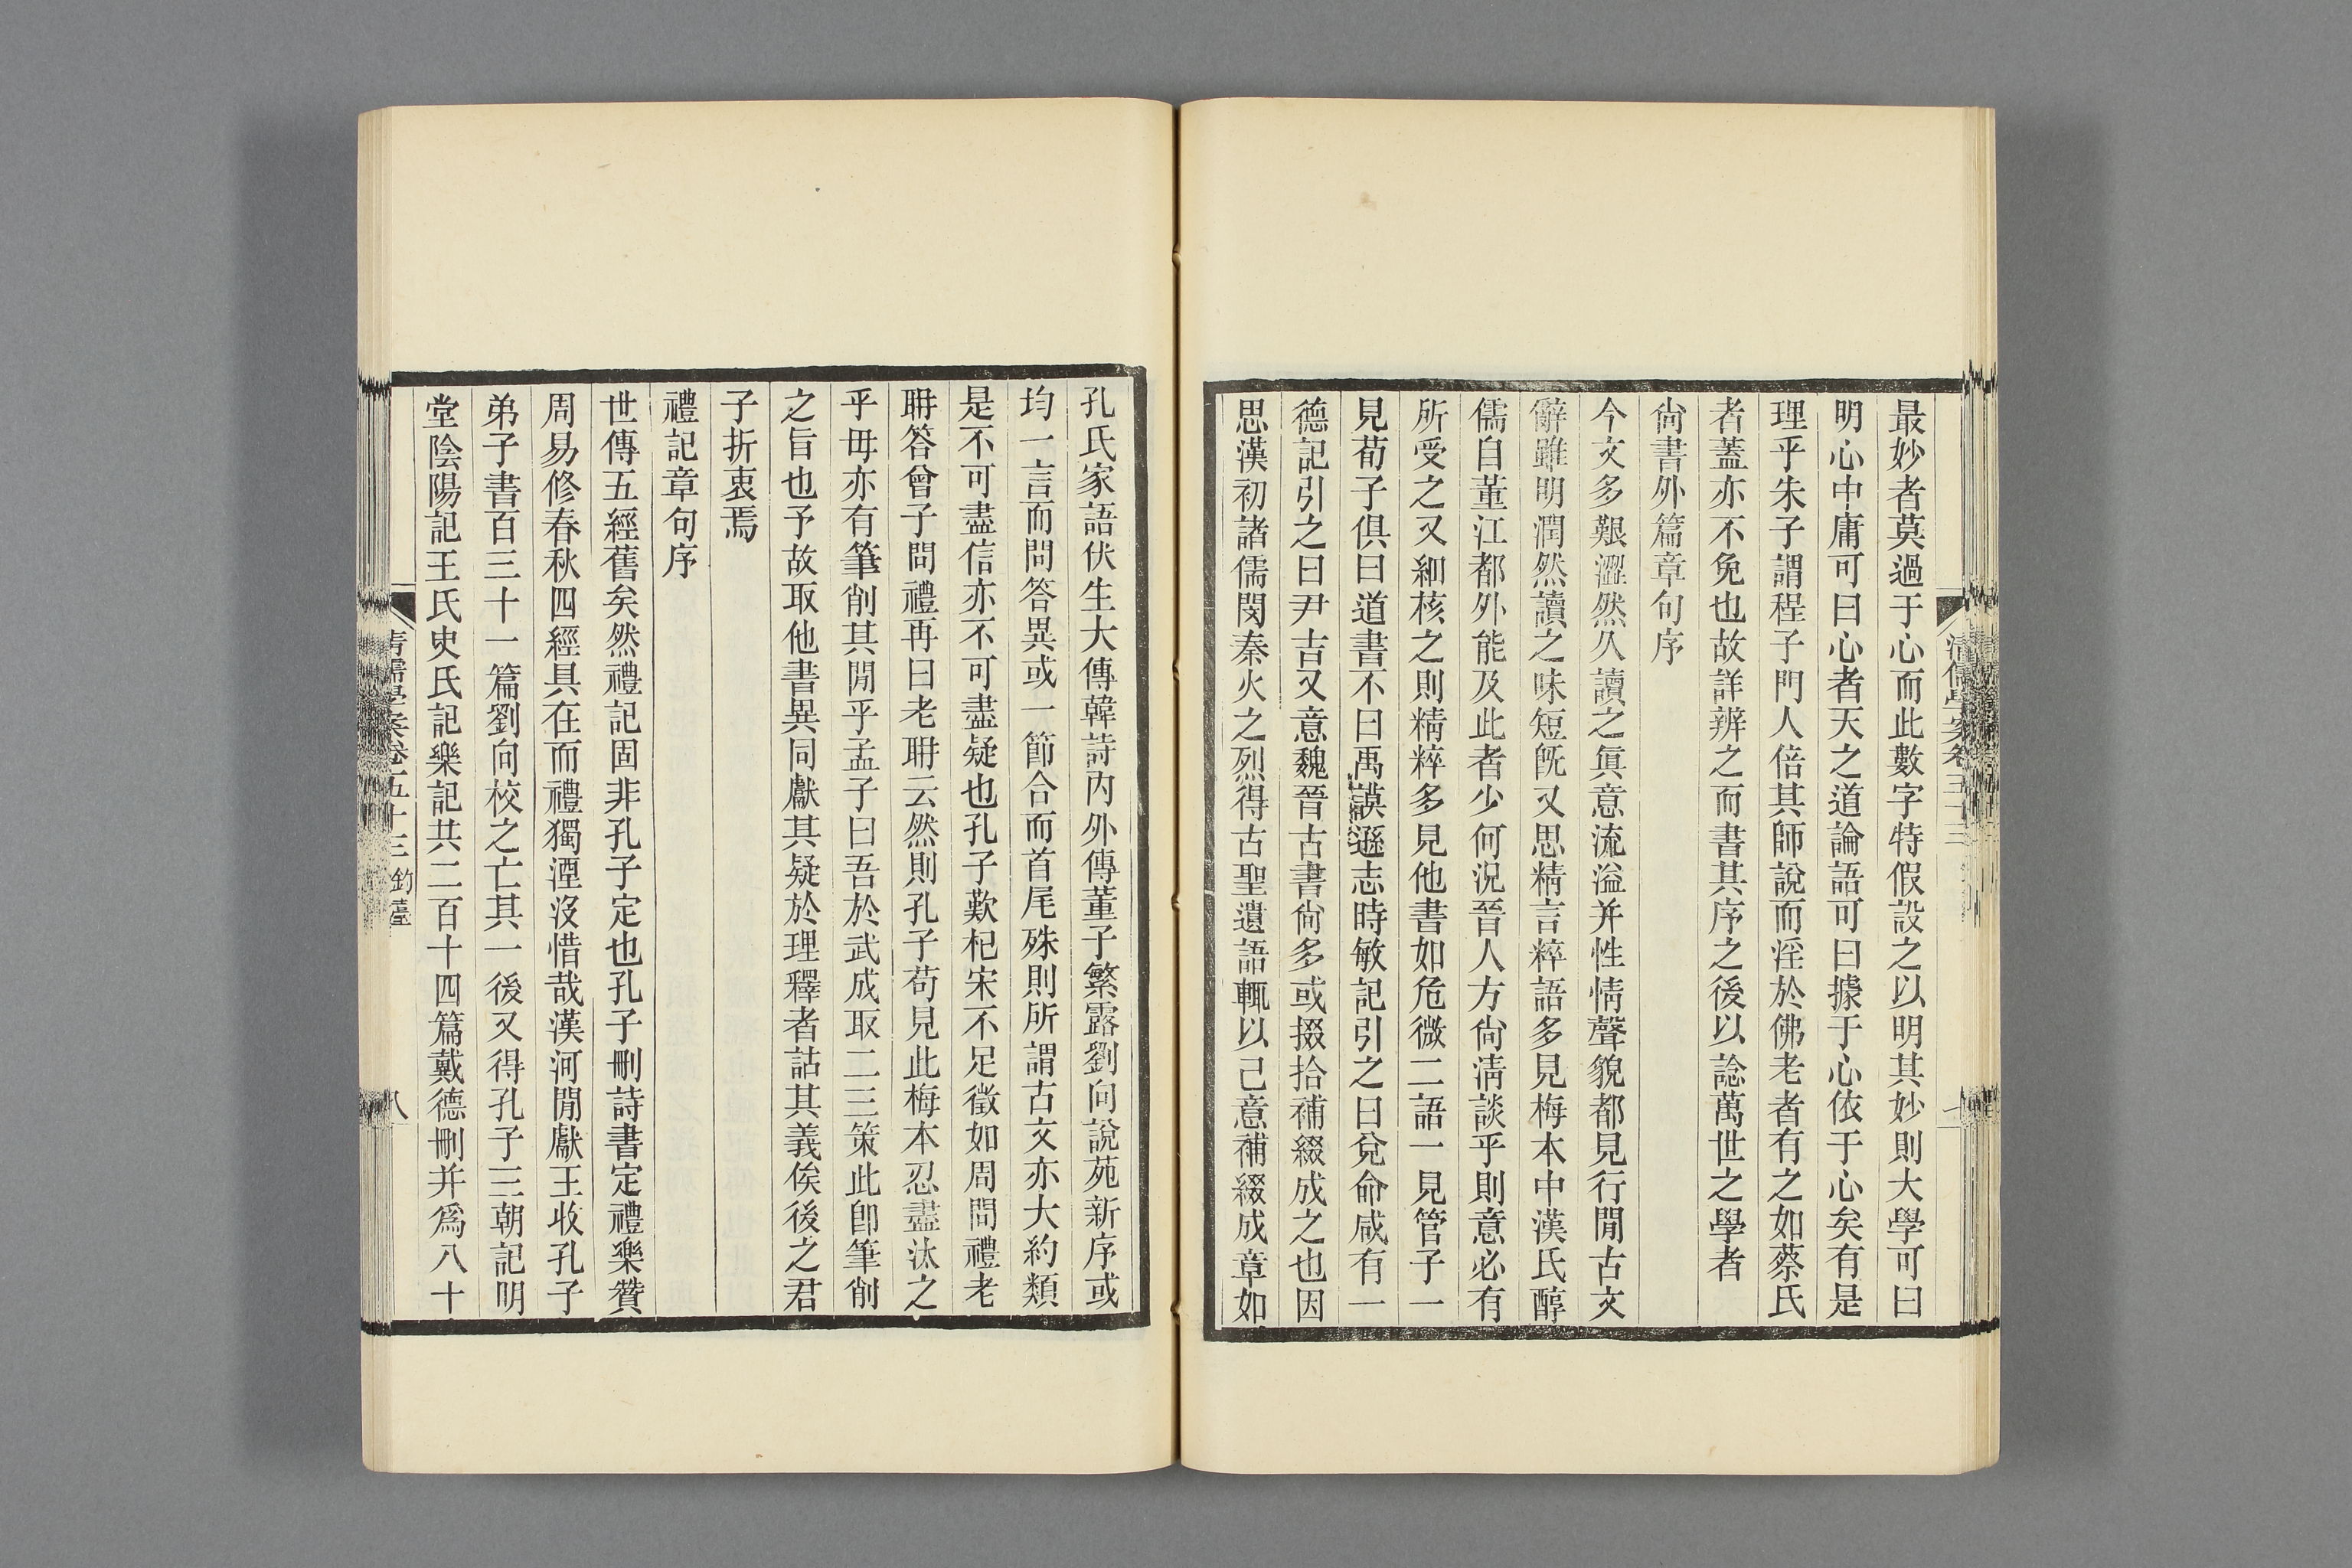 最妙者莫過于心而此數字特假設之以明其妙則大學可曰
明心中庸可曰心者天之道論語可曰據于心依于心矣有是
理乎朱子謂程子門人倍其師說而淫於佛老者有之如蔡氏
者蓋亦不免也故詳辨之而書其序之後以諗萬世之學者
尙書外篇章句序
今文多艱澀然久讀之眞意流溢并性情聲貌都見行閒古文
辭雖明潤然讀之味短旣又思精言粹語多見梅本中漢氏醇
儒自董江都外能及此者少何況晉人方尙淸談乎則意必有
所受之又細核之則精粹多見他書如危微二語一見管子一
見荀子俱曰道書不曰禹謨遜志時敏記引之曰兌命咸有一
德記引之曰尹吉又意魏晉古書尙多或掇拾補綴成之也因
思漢初諸儒閔秦火之烈得古聖遺語輒以己意補綴成章如
孔氏家語伏生大傳韓詩內外傳董子繁露劉向說苑新序或
均一言而問答異或一節合而首尾殊則所謂古文亦大約類
是不可盡信亦不可盡疑也孔子歎杞宋不足徵如周問禮老
聃答曾子問禮再曰老聃云然則孔子苟見此梅本忍盡汰之
乎毋亦有筆削其閒乎孟子曰吾於武成取二三策此卽筆削
之旨也予故取他書異同獻其疑於理釋者詁其義俟後之君
子折衷焉
禮記章句序
世傳五經舊矣然禮記固非孔子定也孔子刪詩書定禮樂贊
周易修春秋四經具在而禮獨湮沒惜哉漢河閒獻王收孔子
弟子書百三十一篇劉向校之亡其一後又得孔子三朝記明
堂陰陽記王氏史氏記樂記共二百十四篇戴德刪并爲八十
清儒學案卷五十三 釣臺
八